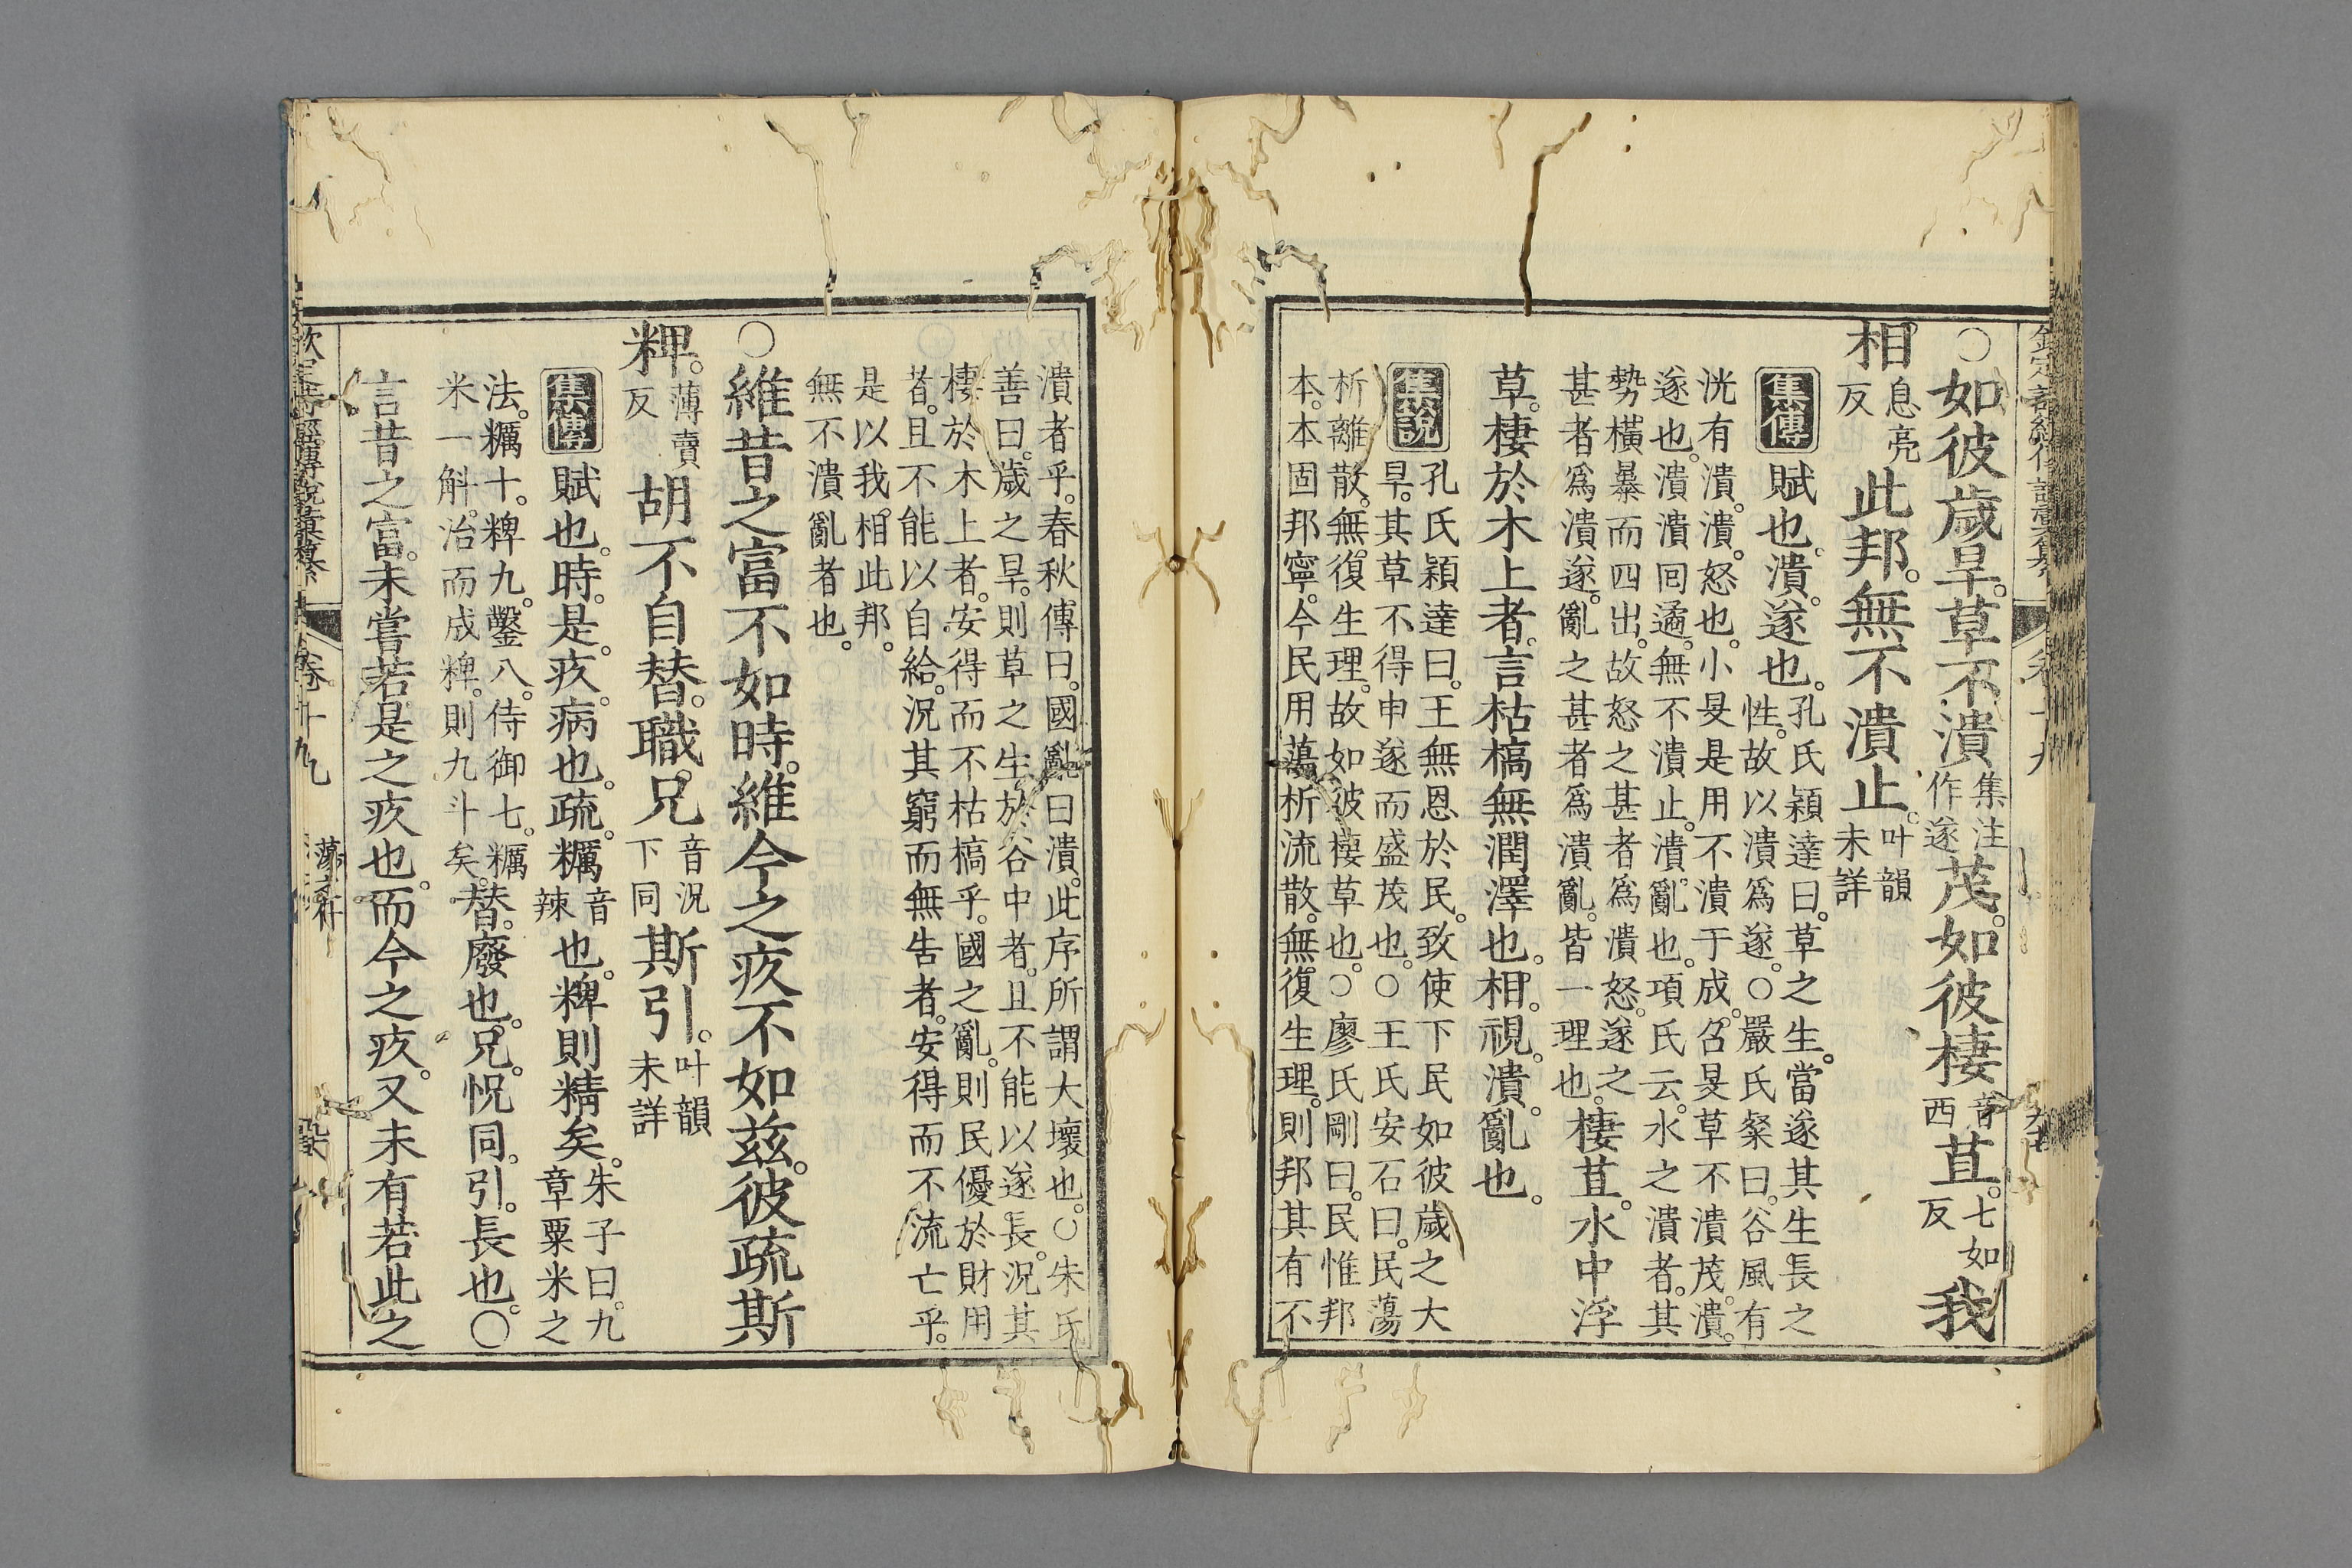 ○如彼歲旱。草不潰集注作遂茂。如彼棲音西苴。七如反我
相息亮反此邦。無不潰止。叶韻未詳
集傳 賦也。潰。遂也。孔氏穎達曰。草之生。當遂其生長之
性。故以潰爲遂。○嚴氏粲曰。谷風有
洸有潰。潰。怒也。小旻是用不潰于成。召旻草不潰茂。潰。
遂也。潰潰回遹。無不潰止。潰。亂也。項氏云。水之潰者。其
勢橫暴而四出。故怒之甚者爲潰怒。遂之
甚者爲潰遂。亂之甚者爲潰亂。皆一理也。棲苴。水中浮
草。棲於木上者。言枯槁無潤澤也。相。視。潰。亂也。
集說 孔氏穎達曰。王無恩於民。致使下民如彼歲之大
旱。其草不得申遂而盛茂也。○王氏安石曰。民蕩
析離散。無復生理。故如彼棲草也。○廖氏剛曰。民惟邦
本。本固邦寧。今民用蕩析流散。無復生理。則邦其有不
潰者乎。春秋傳曰。國亂曰潰。此序所謂大壞也。○朱氏
善曰。歲之旱。則草之生於谷中者。且不能以遂長。況其
棲於木上者。安得而不枯槁乎。國之亂。則民優於財用
者。且不能以自給。況其窮而無告者。安得而不流亡乎。
是以我相此邦。
無不潰亂者也。
○維昔之富不如時。維今之疚不如茲。彼疏斯
粺。薄賣反胡不自替。職兄音況下同斯引。叶韻未詳
集傳 賦也。時。是。疚。病也。疏。糲音辣也。粺則精矣。朱子曰。九章粟米之
法。糲十。粺九。鑿八。侍御七。糲
米一斛。治而成粺。則九斗矣。替。廢也。兄。怳同。引。長也。○
言昔之富。未嘗若是之疚也。而今之疚。又未有若此之